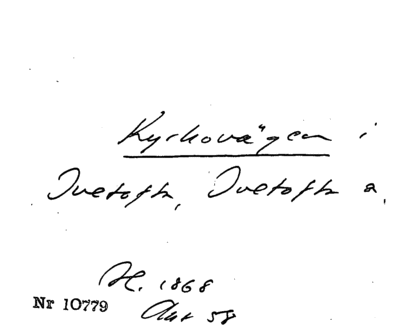 Kyrkovägen i
Ivetofta, Ivetofta s,
H. 1868
Nr 10779
Akt 58